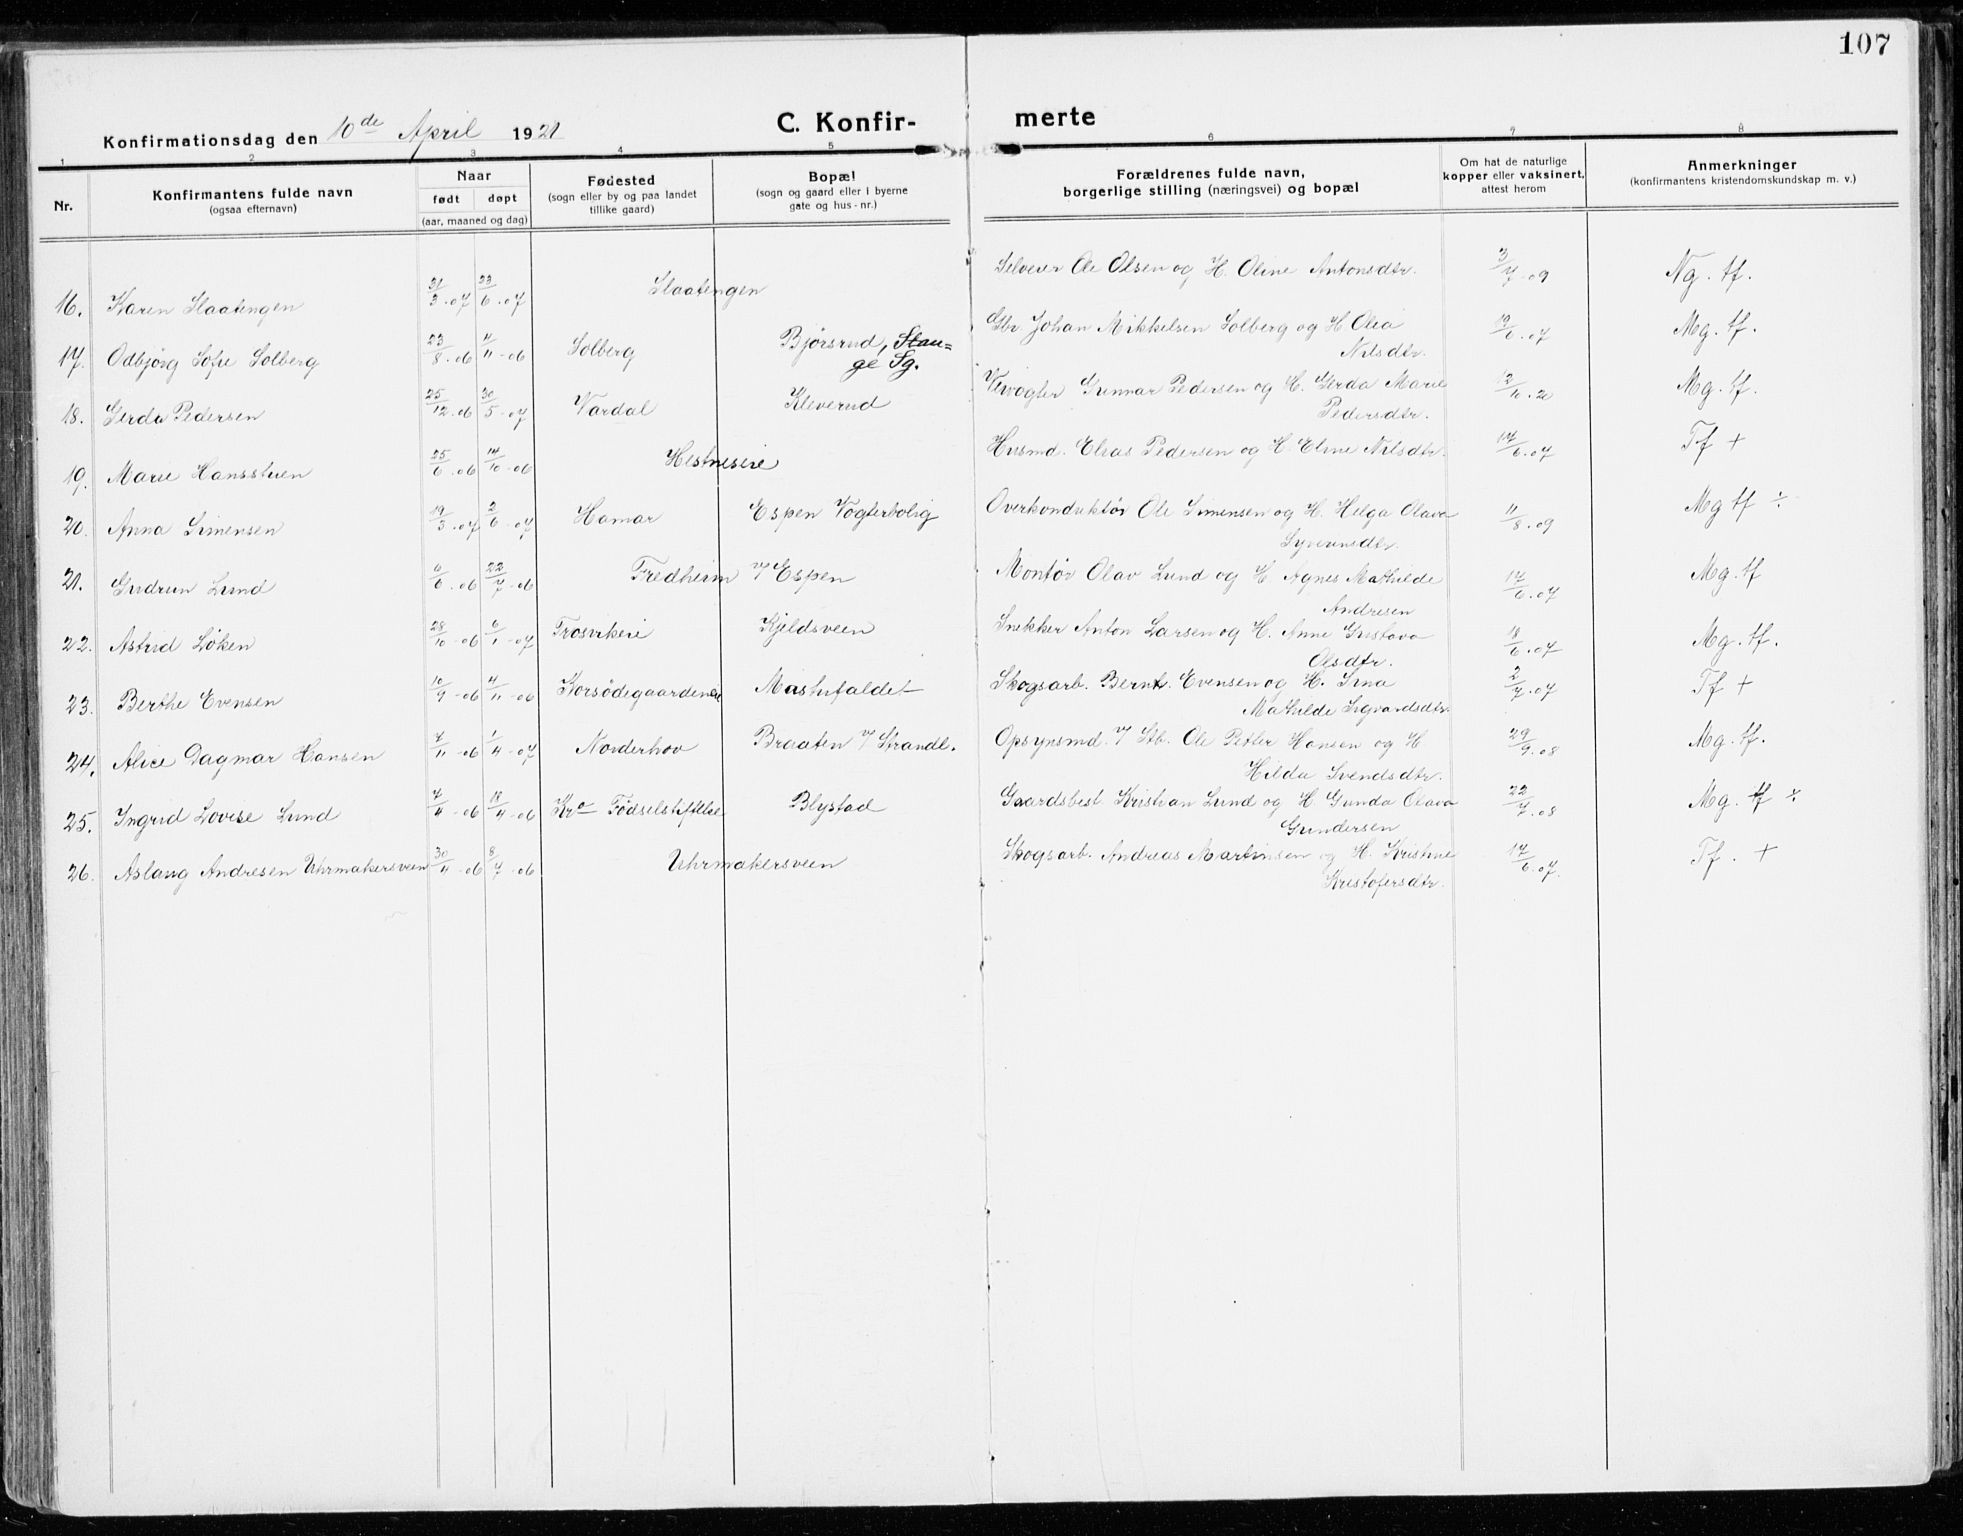 107
Konfirmationsdag den 10de April 1921
C. Konfir- merte
1 2 3 4 5 6 7 8
Nr.
Konfirmantens fulde navn
(ogsaa efternavn)
Naar
født døpt
(aar, maaned og dag)
Fødested
(sogn eller by og paa landet
tillike gaard)
Bopæl
(sogn og gaard eller i byerne
gate og hus-nr.)
Forældrenes fulde navn,
borgerlige stilling (næringsvei) og bopæl
Om hat de naturlige
kopper eller vaksinert,
attest herom
Anmerkninger
(konfirmantens kristendomskundskap m. v.)
16. Karen Slaatengen 31/3.07 23/6.07 Slaatengen Selveier Ole Olsen og H. Oline Antonsdtr. 3/7.09 Ng. tf.
17. Odbjörg Sofie Solberg 23/8.06 4/11-06 Solberg Björsrud, Stan=
ge Sg. Gbr Johan Mikkelsen Solberg og H Olia
Nilsdtr. 19/6.07 Mg. tf.
18. Gerda Pedersen 25/12.06 30/5-07 Vardal Kleverud Veivogter Gunnar Pedersen og H. Gerda Marie
Pedersdtr. 12/10.20 Mg. tf.
19. Marie Hansstuen 25/6.06 14/10-06 Hestneseie Husmd. Elias Pedersen og H. Eline Nilsdtr. 17/6.07 Tf +
20. Anna Simensen 19/3.07 2/6-07 Hamar Espen Vogterbolig Overkonduktör Ole Simensen og H. Helga Olava
Syverinsdtr. 11/8.09 Mg tf ÷
21. Gudrun Lund 6/6.06 22/7-06 Fredheim v/ Espen Montör Olav Lund og H. Agnes Mathilde
Andresen 17/6.07 Mg. tf
22. Astrid Löken 28/10-06 6/1-07 Frosvikeie Kjeldsveen Snekker Anton Larsen og H. Anne Gustava
Olsdtr. 18/6.07 Mg. tf.
23. Berthe Evensen 10/9-06 4/11-06 Korsödegaardeneie Mastufaldet Skogsarb. Bernt. Evensen og H. Irna
Mathilde Sigvardsdtr. 2/7.07 Tf +
24. Alice Dagmar Hansen 7/11-06 1/4-07 Norderhov Braaten v/ Strandl. Opsynsmd. v/ Stb. Ole Petter Hansen og H
Hilda Svendsdtr. 29/9.08 Mg. tf.
25. Ingrid Lovise Lund 7/4-06 18/4-06 Kra Födselstiftelse Blystad Gaardsbest Kristian Lund og H Gunda Olava
Gundersen 22/7.08 Mg. tf ÷
26. Aslaug Andresen Uhrmakersveen 30/4-06 8/7-06 Uhrmakersveen Skogsarb. Andreas Martinsen og H. Kristine
Kristofersdtr. 17/6.07. Tf. +